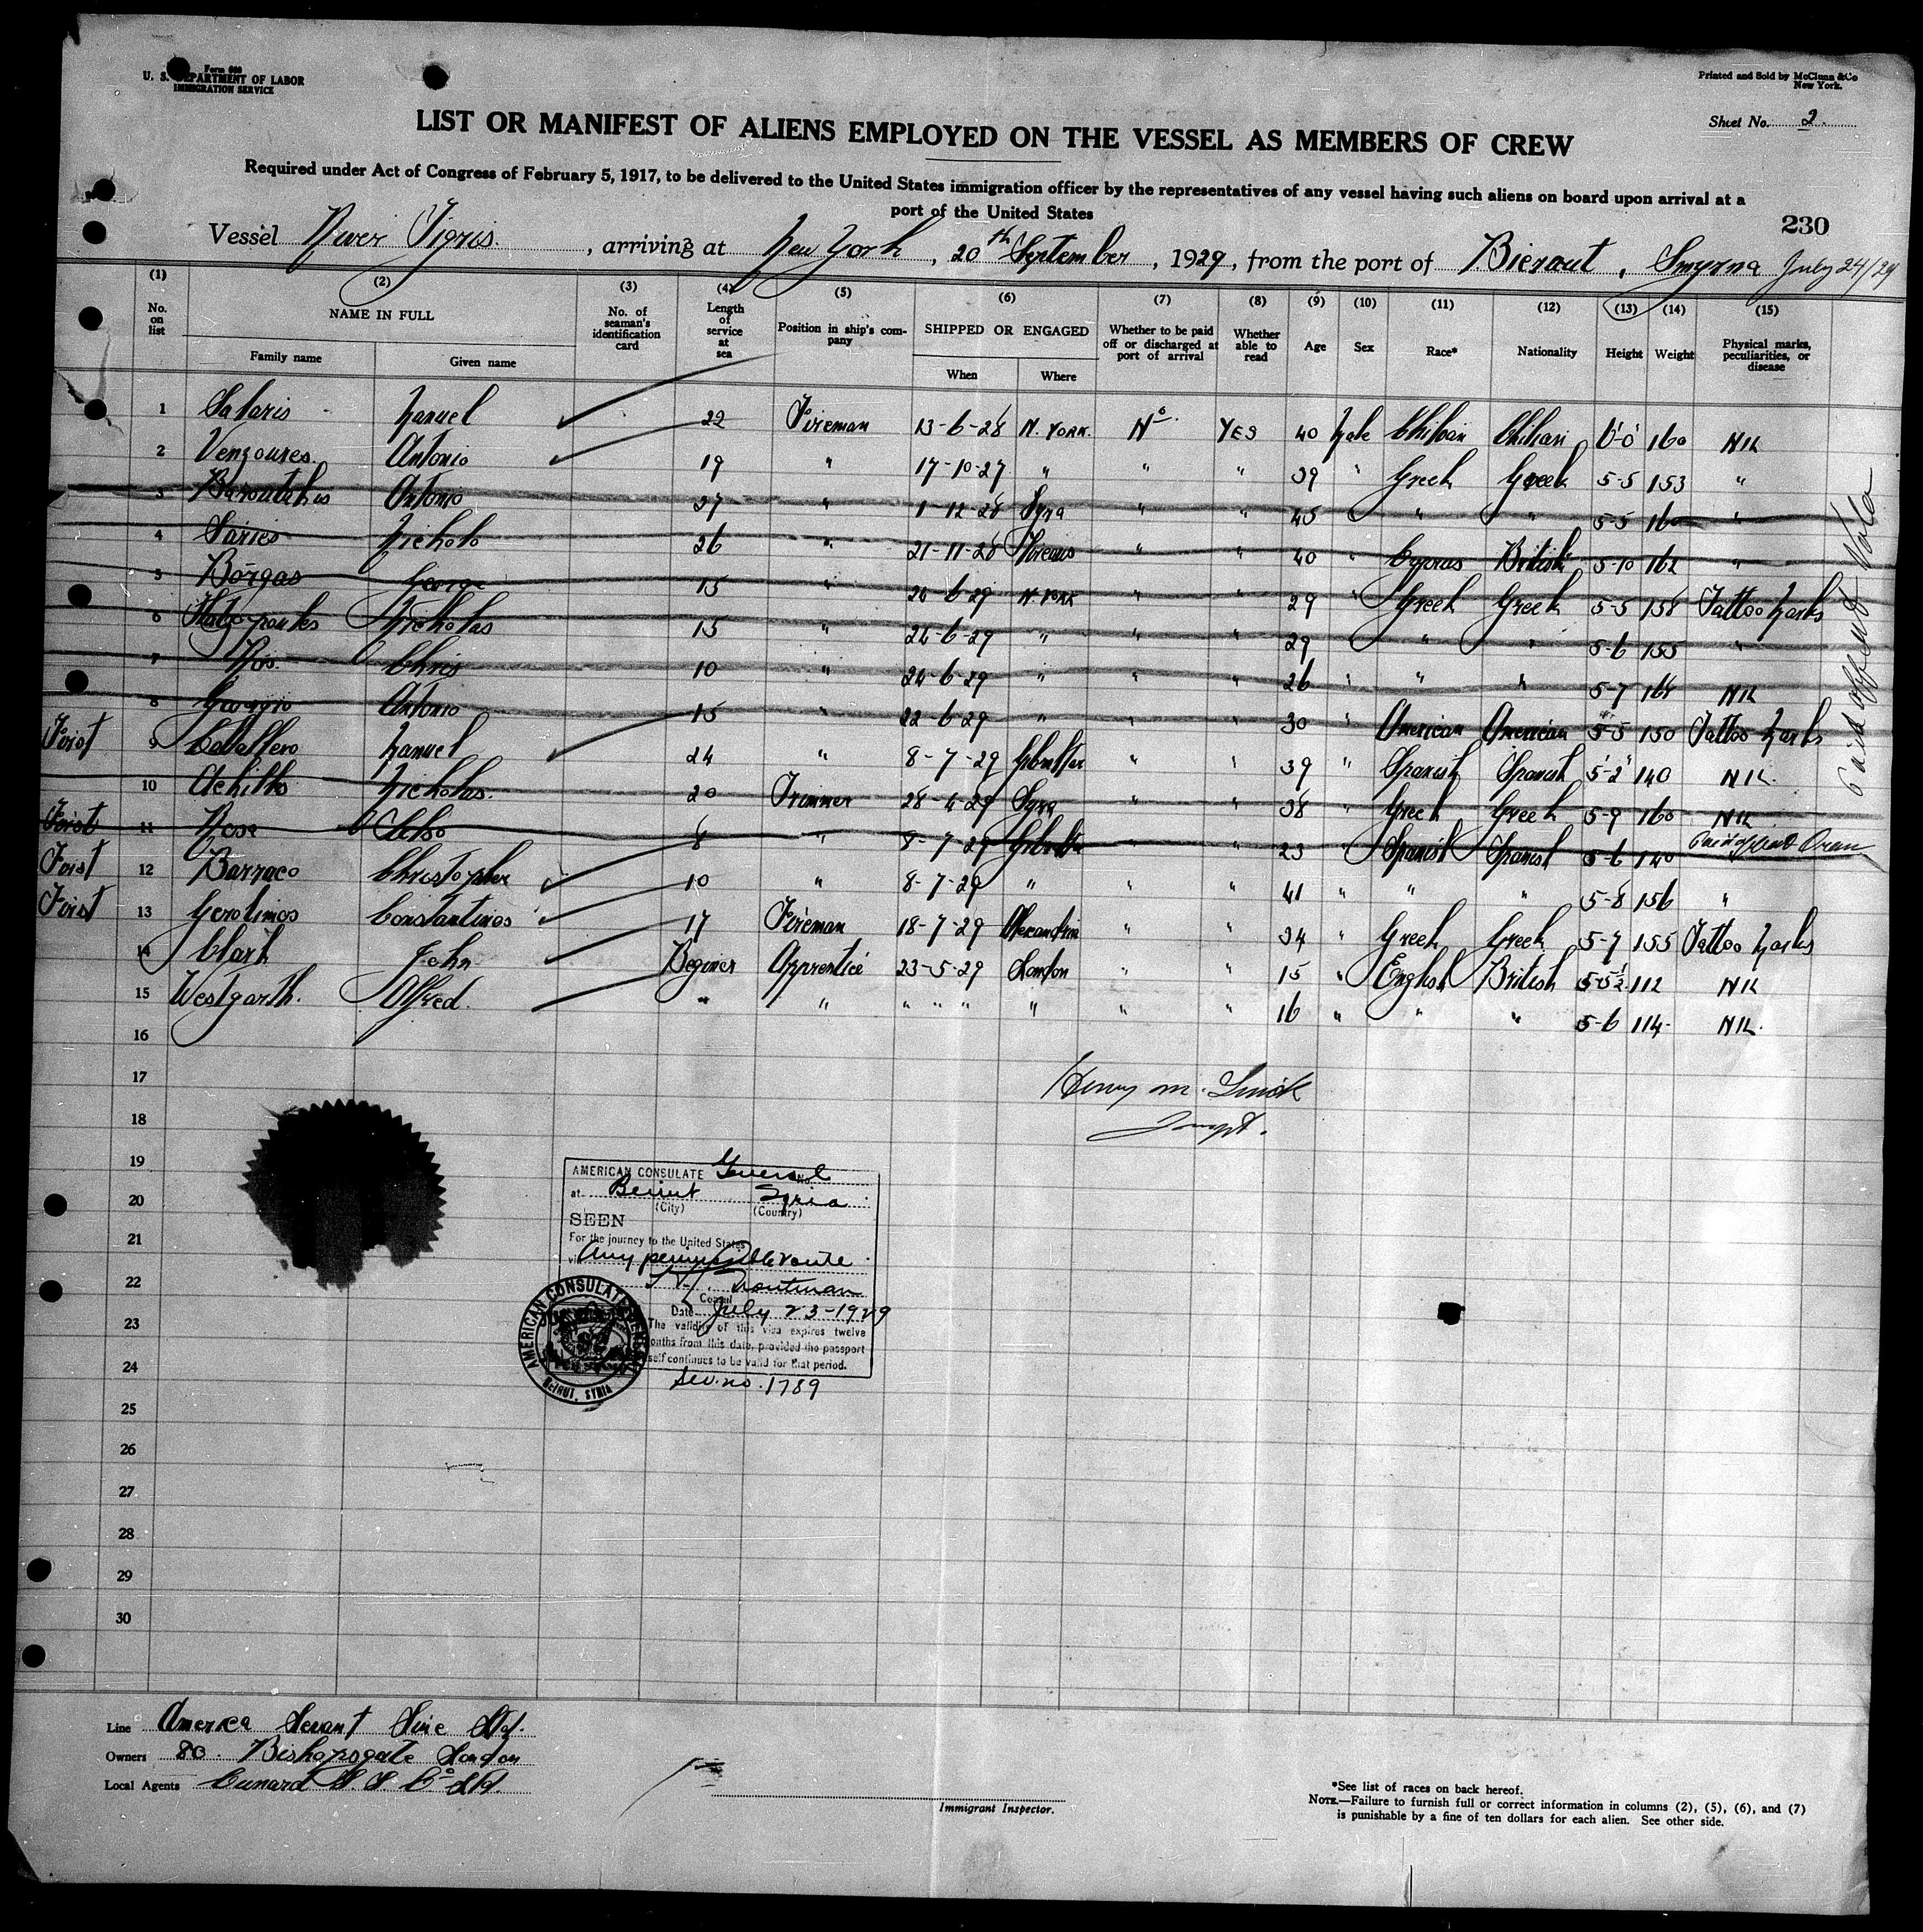 Form 680
U. S. DEPARTMENT OF LABOR
IMMIGRATION SERVICE
Printed and Sold by McClunn & Co
New York.
Sheet No. 2.
LIST OR MANIFEST OF ALIENS EMPLOYED ON THE VESSEL AS MEMBERS OF CREW
Required under Act of Congress of February 5, 1917, to be delivered to the United States immigration officer by the representatives of any vessel having such aliens on board upon arrival at a
port of the United States
230
Vessel River Tigris. , arriving at New York , 20th September , 1929, from the port of Bierout , Smyrna July 24/29
(1) (2) (3) (4) (5) (6) (7) (8) (9) (10) (11) (12) (13) (14) (15)
No. on list NAME IN FULL Family name Given name No. of seaman's identification card Length of service at sea Position in ship's company SHIPPED OR ENGAGED When Where Whether to be paid off or discharged at port of arrival Whether able to read Age Sex Race* Nationality Height Weight Physical marks, peculiarities, or disease
1 Salaris Manuel 22 Fireman 13-6-28 N. YORK. No YES 40 Male Chilian Chilian 6'-0" 160 NIL
2 Venzoures Antonio 19 " 17-10-27 " " " 39 " Greek Greek 5-5 153 "
3 Antonio 27 " 1-12-28 Syra " " 45 " " " 5-5 160 "
4 Saries Nicholo 26 " 21-11-28 " " 40 " Cyprus British 5-10 162 "
5 Borgas George 15 " 24-6-29 N. YORK " " 29 " Greek Greek 5-5 158 Tattoo Marks
6 Nicholas 15 " 24-6-29 " " " 29 " " " 5-6 155 "
7 Ros. Chris 10 " 24-6-29 " " " 26 " " " 5-7 168 NIL
8 Antonio 15 " 22-6-29 " " " 30 " American American 5-5 150 Tattoo Marks
First 9 Caballero Manuel 24 " 8-7-29 Gibraltar " " 39 " Spanish Spanish 5'-2" 140 NIL
10 Achillis Nicholas. 20 Trimmer 28-4-29 Syra " " 38 " Greek Greek 5-9 160 NIL
First 11 Rosa Celso 8 " 8-7-29 Gibraltar " " 23 " Spanish Spanish 5-6 140 Paid off at Oran
First 12 Barraco Christopher 10 " 8-7-29 " " " 41 " " " 5-8 156 "
First 13 Gerolimos Constantinos 17 Fireman 18-7-29 Alexandria " " 34 " Greek Greek 5-7 155 Tattoo Marks
14 Clark John Beginer Apprentice 23-5-29 London " " 15 " English British 5-5½ 112 NIL
15 Westgarth. Alfred. " " " " " " " " 16 " " " 5-6 114 NIL.
16
17
18
19
20
21
22
23
24
25
26
27
28
29
30
Paid off
Henry M.
AMERICAN CONSULATE General
No.
at Beirut Syria
(City) (Country)
SEEN
For the journey to the United States
via Any permissible route
Consul
Date July 23-1929
The validity of this visa expires twelve
months from this date, provided the passport
itself continues to be valid for that period.
Sev. no. 1789
AMERICAN CONSULATE GENERAL
BEIRUT, SYRIA
Line America Levant Line Ltd.
Owners 80. Bishopsgate London
Local Agents Cunard S. S. Co Ltd.
Immigrant Inspector.
*See list of races on back hereof.
NOTE.—Failure to furnish full or correct information in columns (2), (5), (6), and (7)
is punishable by a fine of ten dollars for each alien. See other side.